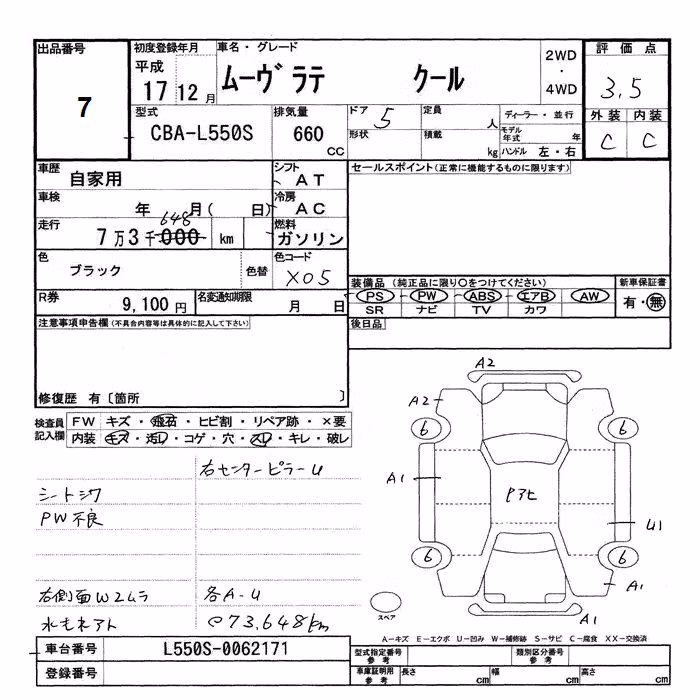 出品番号
7
初度登録年月
平成
17 12 月
車名・グレード
ムーヴ ラテ クール
2WD
・
4WD
評価点
3.5
外装 内装
C C
型式
CBA-L550S
排気量
660
cc
ドア 5
形状
定員 人
積載 kg
ディーラー・並行
モデル年式 年
ハンドル 左・右
車歴
自家用
シフト
AT
セールスポイント(正常に機能するものに限ります)
車検
年 月( 日)
冷房
AC
走行
648
7万3千000 km
燃料
ガソリン
色
ブラック
色替
色コード
X05
装備品 (純正品に限り○をつけてください)
PS PW ABS エアB AW
SR ナビ TV カワ
新車保証書
有・無
R券
9,100円
名変通知期限
月 日
後日品
注意事項申告欄(不具合内容等は具体的に記入して下さい)
修復歴 有〔箇所 〕
検査員記入欄
FW キズ・飛石・ヒビ割・リペア跡・×要
内装 キズ・汚レ・コゲ・穴・スレ・キレ・破レ
右センターピラーU
シートシワ
PW不良
右側面W2ムラ
各A-U
水もれアト
○73,648km
A2
A2
6
6
A1
U1
6
6
A1
A1
スペア
A-キズ E-エクボ U-凹み W-補修跡 S-サビ C-腐食 XX-交換済
車台番号
L550S-0062171
登録番号
型式指定番号
参考
類別区分番号
参考
車庫証明用
参考
長さ cm
幅 cm
高さ cm